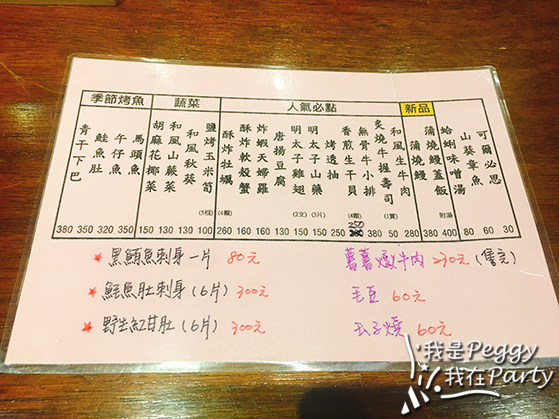 季節烤魚 蔬菜 人氣必點 新品
青干下巴
鮭魚肚
午仔魚
馬頭魚
胡麻花椰菜
和風山蕨菜
和風秋葵
鹽烤玉米筍
(5根)
酥炸牡蠣
(4顆)
酥炸軟殼蟹
炸蝦天婦羅
唐揚豆腐
明太子雞翅
(2支)
明太子山藥
(3片)
烤透抽
香煎生干貝
(4顆)
無骨牛小排
炙燒牛握壽司
(1貫)
和風生牛肉
蒲燒鰻
蒲燒鰻蓋飯
附湯
蛤蜊味噌湯
山葵章魚
可爾必思
250
380 350 320 350 150 130 130 100 260 160 160 130 110 150 150 250 380 80 250 380 400 80 60 30
★ 黑鮪魚刺身一片 80元
薯薯燉牛肉 230元 (售完)
★ 鮭魚肚刺身(6片) 300元
毛豆 60元
★ 野生紅甘肚(6片) 300元
玉子燒 60元
我是Peggy
我在Party